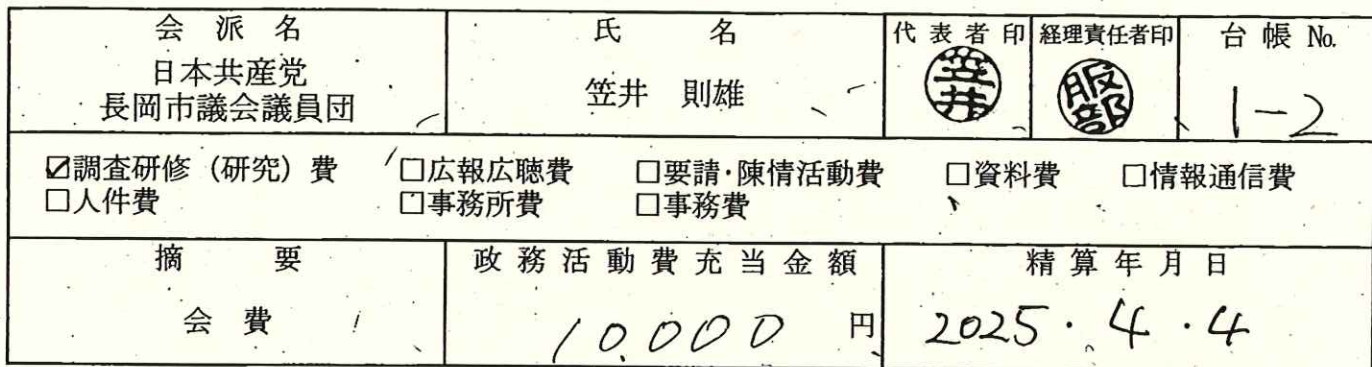 会派名 氏名 代表者印 経理責任者印 台帳 No.
日本共産党
長岡市議会議員団 笠井 則雄 笠井 服部 1-2
☑調査研修(研究)費 □広報広聴費 □要請・陳情活動費 □資料費 □情報通信費
□人件費 □事務所費 □事務費
摘要 政務活動費充当金額 精算年月日
会費 10,000 円 2025・4・4